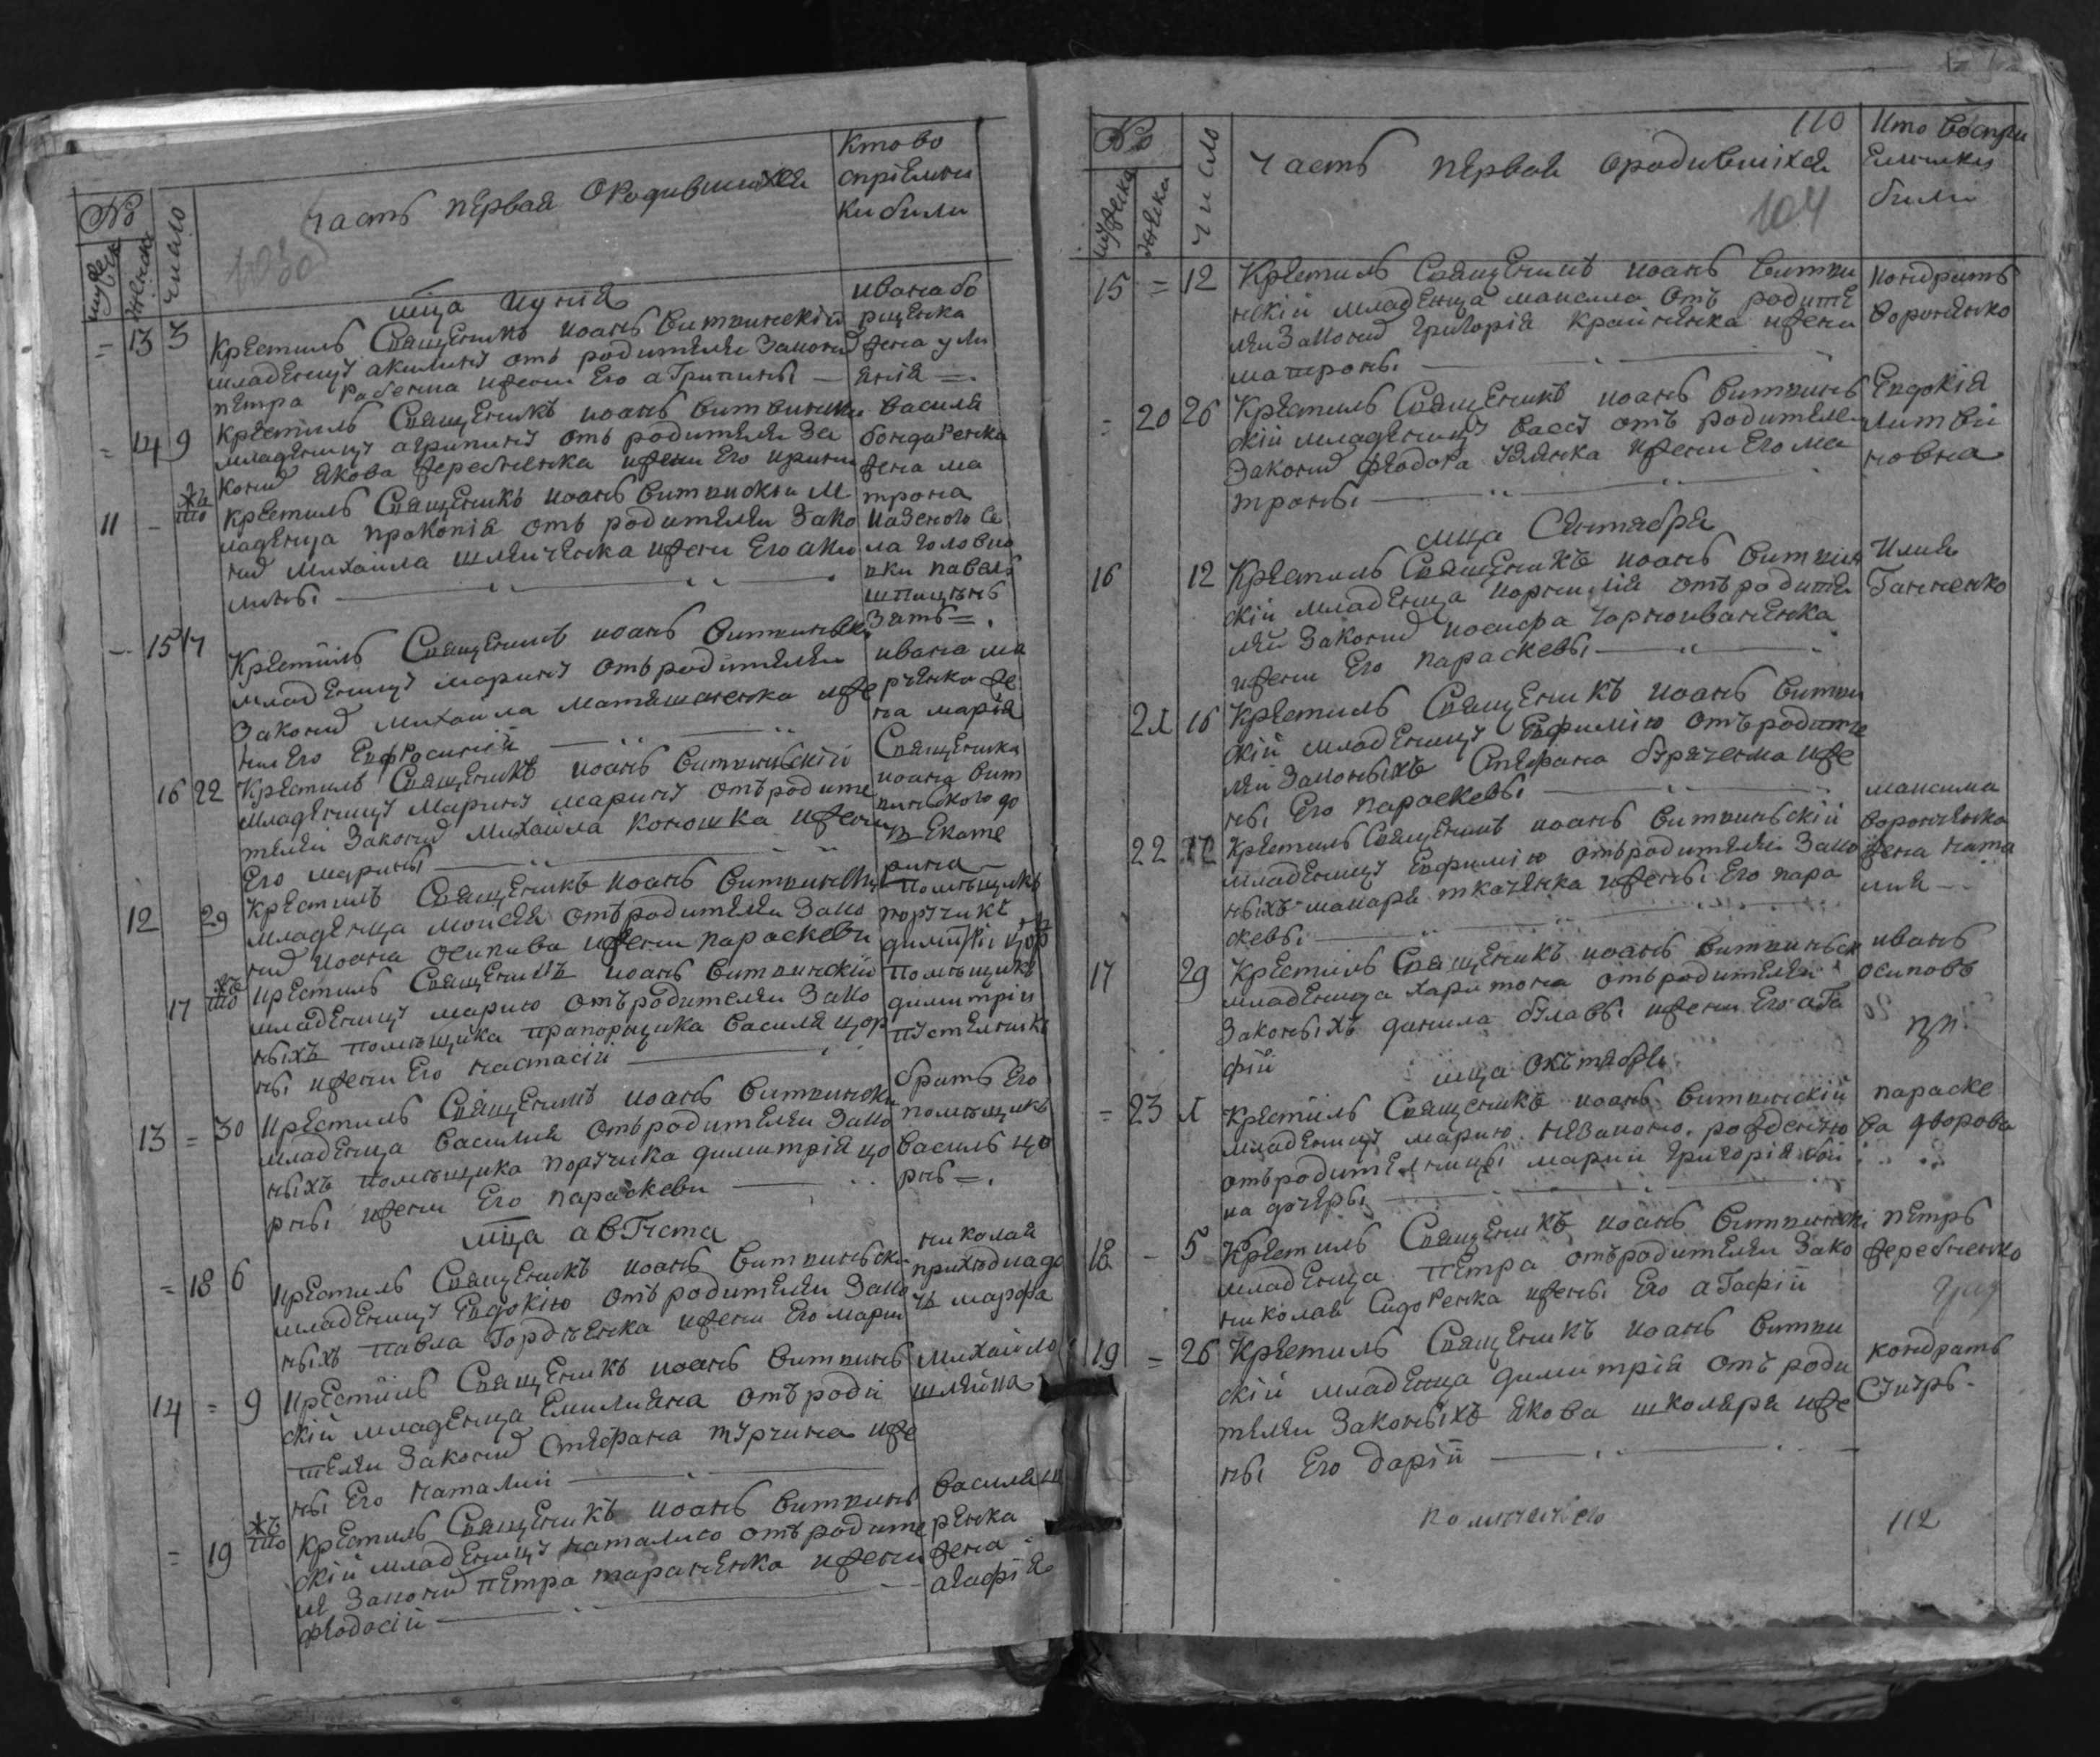 №
мужеска
женска
число
Часть первая ОРодившихся
Кто во
спріемни
ки били
мца иунїя
= 13 3 Крестилъ Священикъ иоанъ Витвинский
младеницу акилину отъ родителеи Законнихъ
петра Рабенка ижени Его агрипины —
ивана бо
рщенка
жена ули
янія =.
= 14 9 Крестилъ Священикъ иоанъ витвински
младеницу агрипину отъ родителеи за
кон Якова жеребненка ижени Его ирини
василя
бондаренка
жена ма
трона
11 — тго Крестилъ Священикъ иоанъ витвински м
ладенца прокопія отъ родителеи Зако
них Михаила шляиченка ижени Его аки
лины —
Казеного Се
ла головко
вки павелъ
Зять =.
— 15 17 Крестилъ Священикъ иоанъ витвинськ
младеницу марину отъ родителеи
Закон михаила матяшненка ижe
ни Его Евфросиній —
ивана ма
рченка же
на марія
16 22 Крестилъ Священикъ иоанъ витвинскій
младеницу марину марину отъ родите
телеи Закон Михаила Конюшка ижени
Его марины —
Священика
иоана вит
винского до
чь Екате
рина —
12 29 Крестилъ Священикъ иоанъ витвински
младенца моисея отъ родителеи Зако
них иоана осипова ижени параскеви
помѣщикъ
поручикъ
димитріи
17 тго Крестилъ Священикъ иоанъ витвинскій
младеницу марию отъ родителеи Зако
ныхъ помѣщика прапорщика Василя цор
ны ижени Его настасіи —
помѣщикъ
димитріи
13 = 30 Крестилъ Священикъ иоанъ витвински
младенца василия отъ родителеи Зако
ныхъ помѣщика поручика димитрія цо
рны ижени Его параскеви —
братъ Его
помѣщикъ
василь цо
рнъ =.
мца августа
= 18 6 Крестилъ Священикъ иоанъ витвинськи
младеницу Евдокію отъ родителеи Зако
ныхъ павла Гордиенка ижени Его марии
николая
до
чь марфа
14 = 9 Крестилъ Священикъ иоанъ витвинь
скіи младенца Емилияна отъ роди
телеи Закон Стефана турчина иже
ны Его наталіи —
михаило
шлейка
= 19 тго Крестилъ Священикъ иоанъ витвинь
скіи младеницу наталію отъ родите
ле Закон петра тараненка ижени
феодосіи —
василя
ренка
жена
агафія
110
104
№
мужеска
женска
число
Часть первая ородившіхся
Кто воспри
емники
били
15 = 12 Крестилъ Священикъ иоанъ витви
нскіи младенца максима отъ родите
леи Закон григорія Крайненка ижени
матроны —
Кондратъ
воронянко
= 20 26 Крестилъ Священикъ иоанъ витвинь
скіи младеницу вассу отъ родителе
Закон феодора ижени Его ма
троны —
Евдокія
литві
новна
мца Сентября
16 12 Крестилъ Священикъ иоанъ витвин
скіи младенца корнилія отъ родите
леи Закон иосифа Чорноиваненка
ижени Его параскевы —
Илия
Ганненко
21 16 Крестилъ Священикъ иоанъ витвин
скіи младеницу Евфимію отъ родите
леи Законыхъ Стефана буряченка иже
ны Его параскевы —
22 Крестилъ Священикъ иоанъ витвинскій
младеницу Евфимію отъ родителеи Зако
ныхъ макаря ткаченка ижены Его пара
скевы —
максима
воронченка
жена ната
лия —
17 29 Крестилъ Священикъ иоанъ витвиньск
младенца харитона отъ родителеи
Законыхъ данила булавы ижени Его ага
фіи
иванъ
осиповъ
мца Октября
= 23 1 Крестилъ Священикъ иоанъ витвинскій
младеницу марию незаконо рожденую
отъ родителницы марии григорія
на дочеры —
параске
ва дворова
18 — 5 Крестилъ Священикъ иоанъ витвински
младенца петра отъ родителеи Зако
николая Сидоренка ижены Его агафіи
петръ
жеребненко
19 = 26 Крестилъ Священикъ иоанъ витви
скіи младенца димитрія отъ роди
телеи Законыхъ якова школяра иже
ны Его даріи —
кондратъ
112